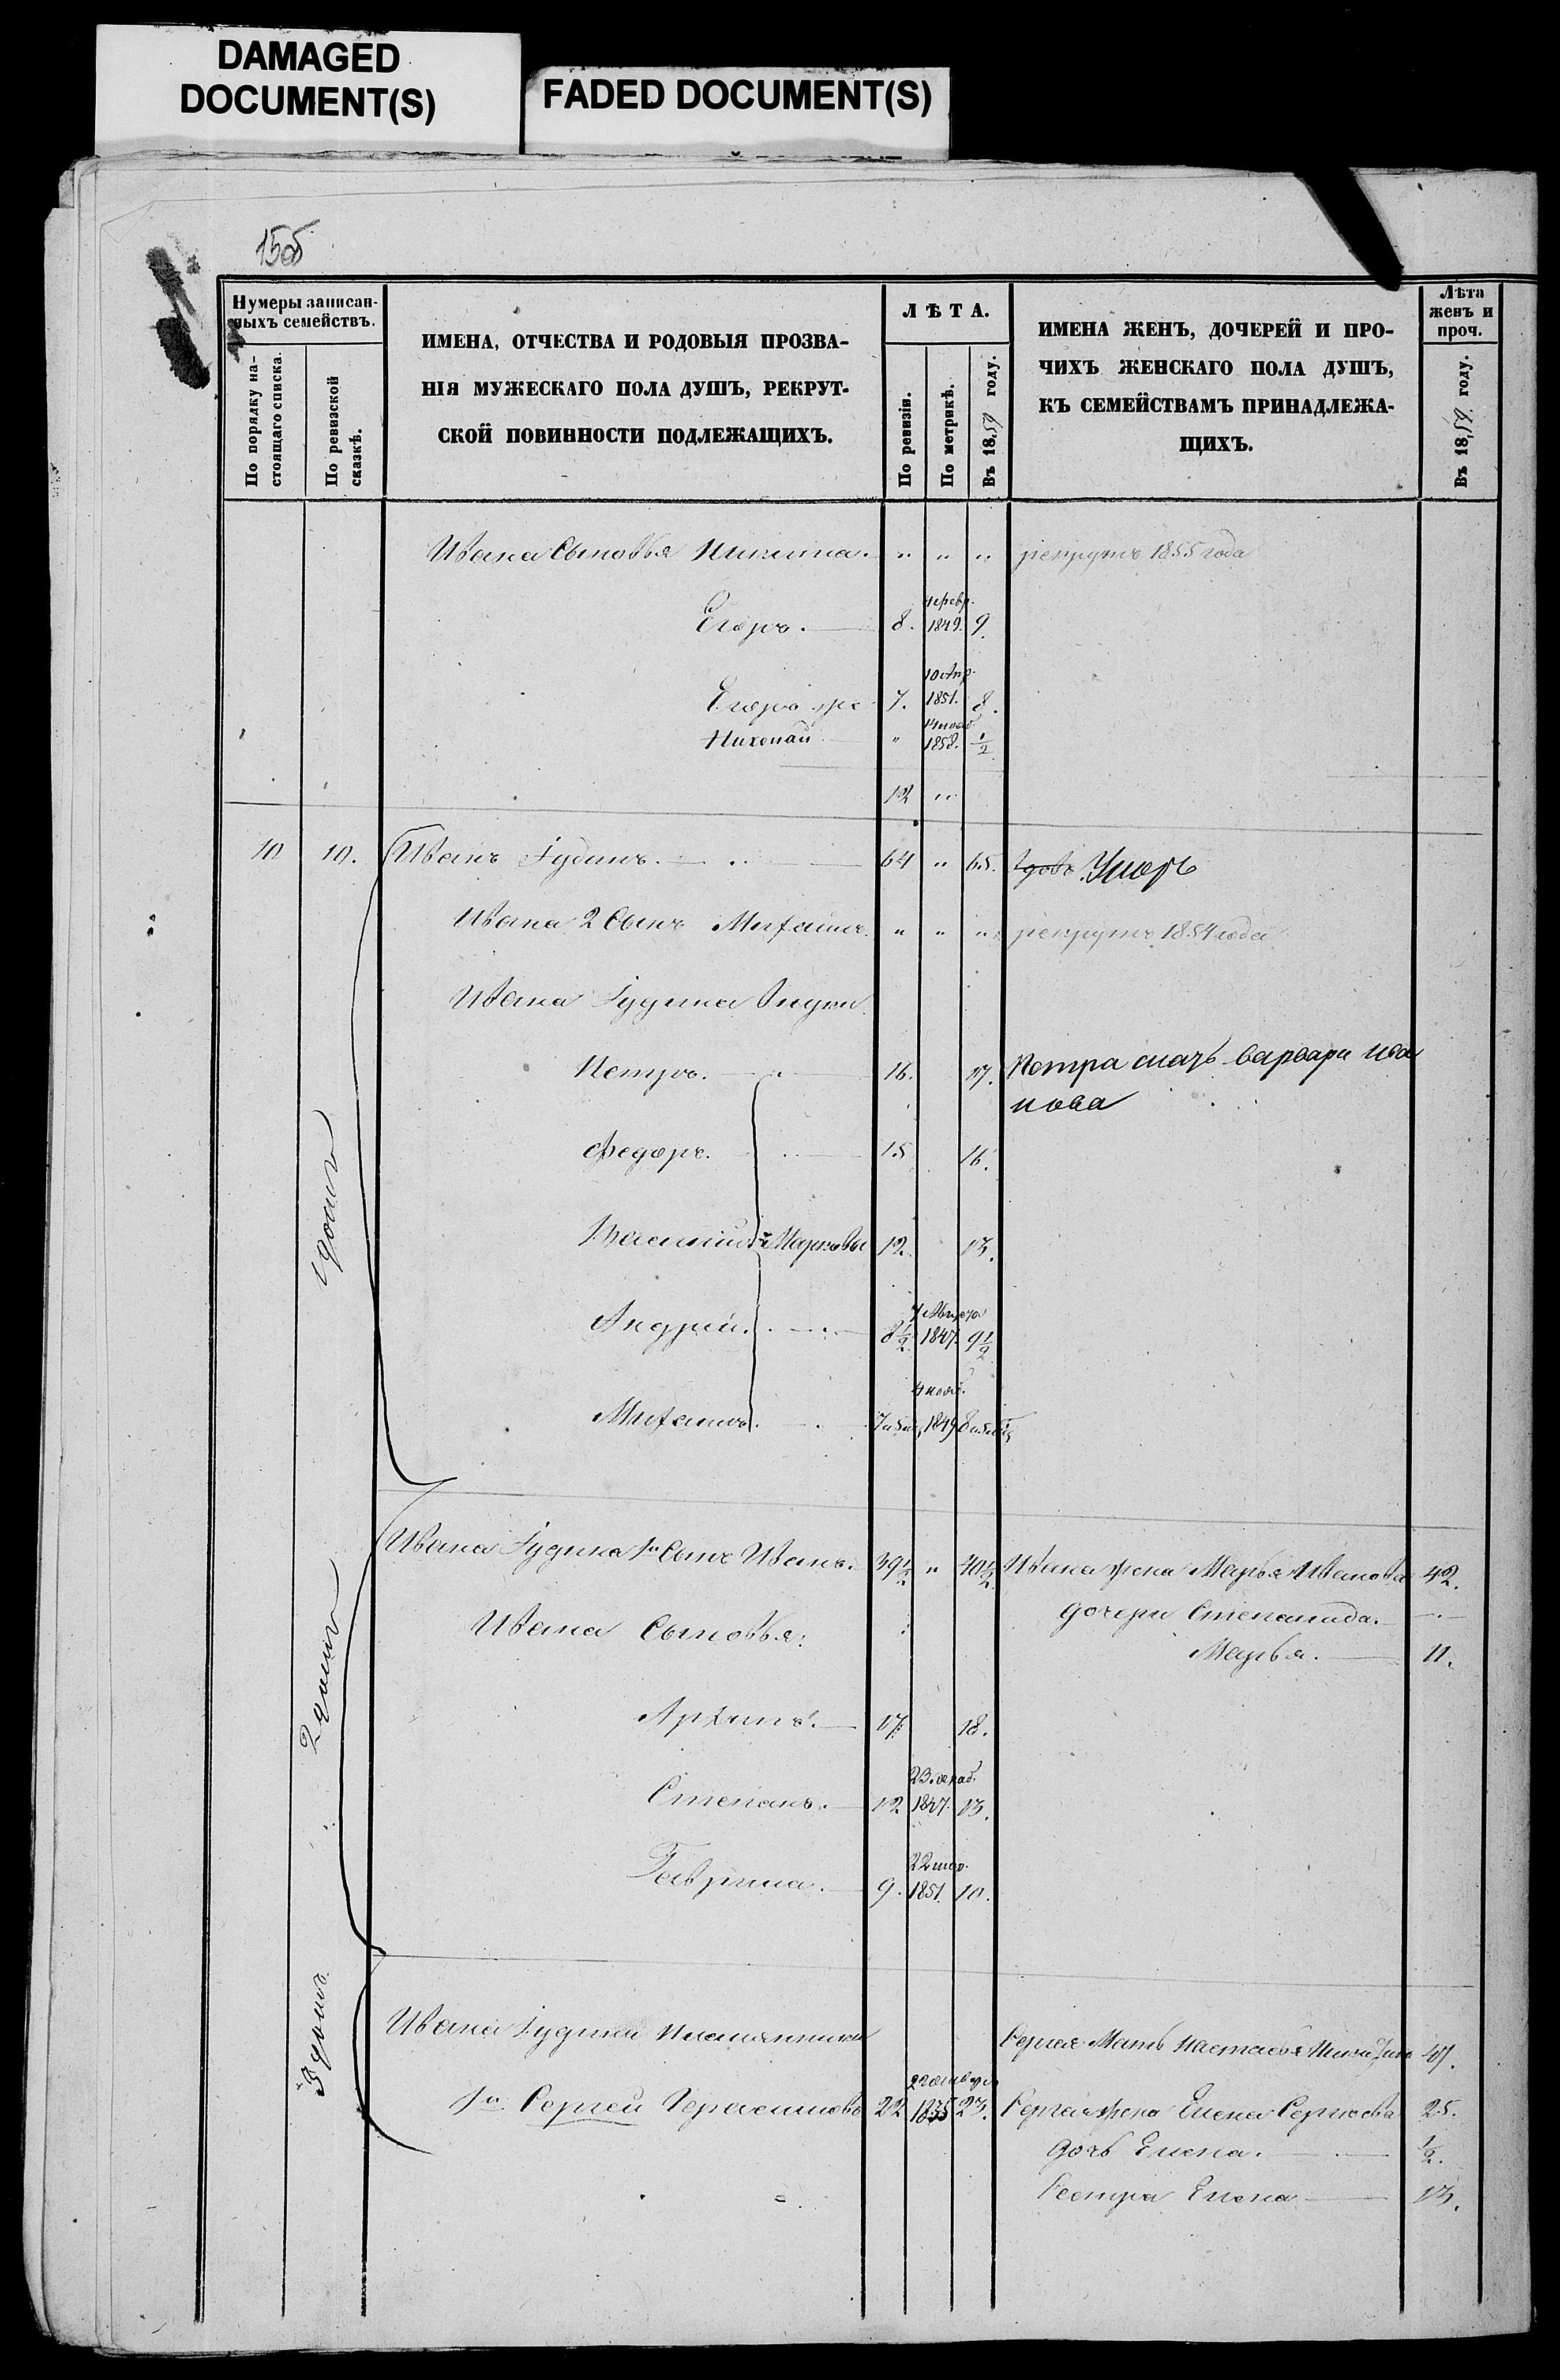 DAMAGED
DOCUMENT(S)
FADED DOCUMENT(S)
15об
Нумеры записан-
ныхъ семействъ.
По порядку на-
стоящаго списка.
По ревизской
сказкѣ.
ИМЕНА, ОТЧЕСТВА И РОДОВЫЯ ПРОЗВА-
НІЯ МУЖЕСКАГО ПОЛА ДУШЪ, РЕКРУТ-
СКОЙ ПОВИННОСТИ ПОДЛЕЖАЩИХЪ.
ЛѢТА.
По ревизіи.
По метрикѣ.
Въ 1859 году.
ИМЕНА ЖЕНЪ, ДОЧЕРЕЙ И ПРО-
ЧИХЪ ЖЕНСКАГО ПОЛА ДУШЪ,
КЪ СЕМЕЙСТВАМЪ ПРИНАДЛЕЖА-
ЩИХЪ.
Лѣта
женъ и
проч.
Въ 1859. году.
Ивана Сыновья Никита. " " " рекрутъ 1855 года
Егоръ. 8. 1849. 9.
10 Апр.
Егоръ же 7. 1851. 8.
14 нояб.
Николай " 1858. 1/2
12 "
10 10. Иванъ Гудинъ. 64 " 65. вдовъ Умеръ
Ивана 2 Сынъ Михаилъ " " " рекрутъ 1854 года
Ивана Гудина Внуки
Петръ. 16. 17. Петра мать Варвара Ива
нова
1 домъ
Федоръ. 15 16.
Василий Марковы 12. 13.
7 Августа
Андрей. 8 1/2 1847. 9 1/2
4 нояб.
Михаилъ. 1849
Ивана Гудина 1й Сынъ Иванъ. 39 1/2 " 40 1/2 Ивана жена Марья Иванова 42.
дочери Степанида.
Ивана Сыновья:
Марья. 11.
2 домъ
Архипъ. 17. 18.
23 декаб.
Степанъ. 12 1847. 13.
22 мар.
Гаврила. 9. 1851. 10.
3 домъ
Ивана Гудина племянники
Сергея Мать Настасья 47.
22 января
1й Сергей Герасимовъ 22 1835 23. Сергея жена Елена Сергеева 25.
дочь Елена. 1/2.
Сестра Елена 13.